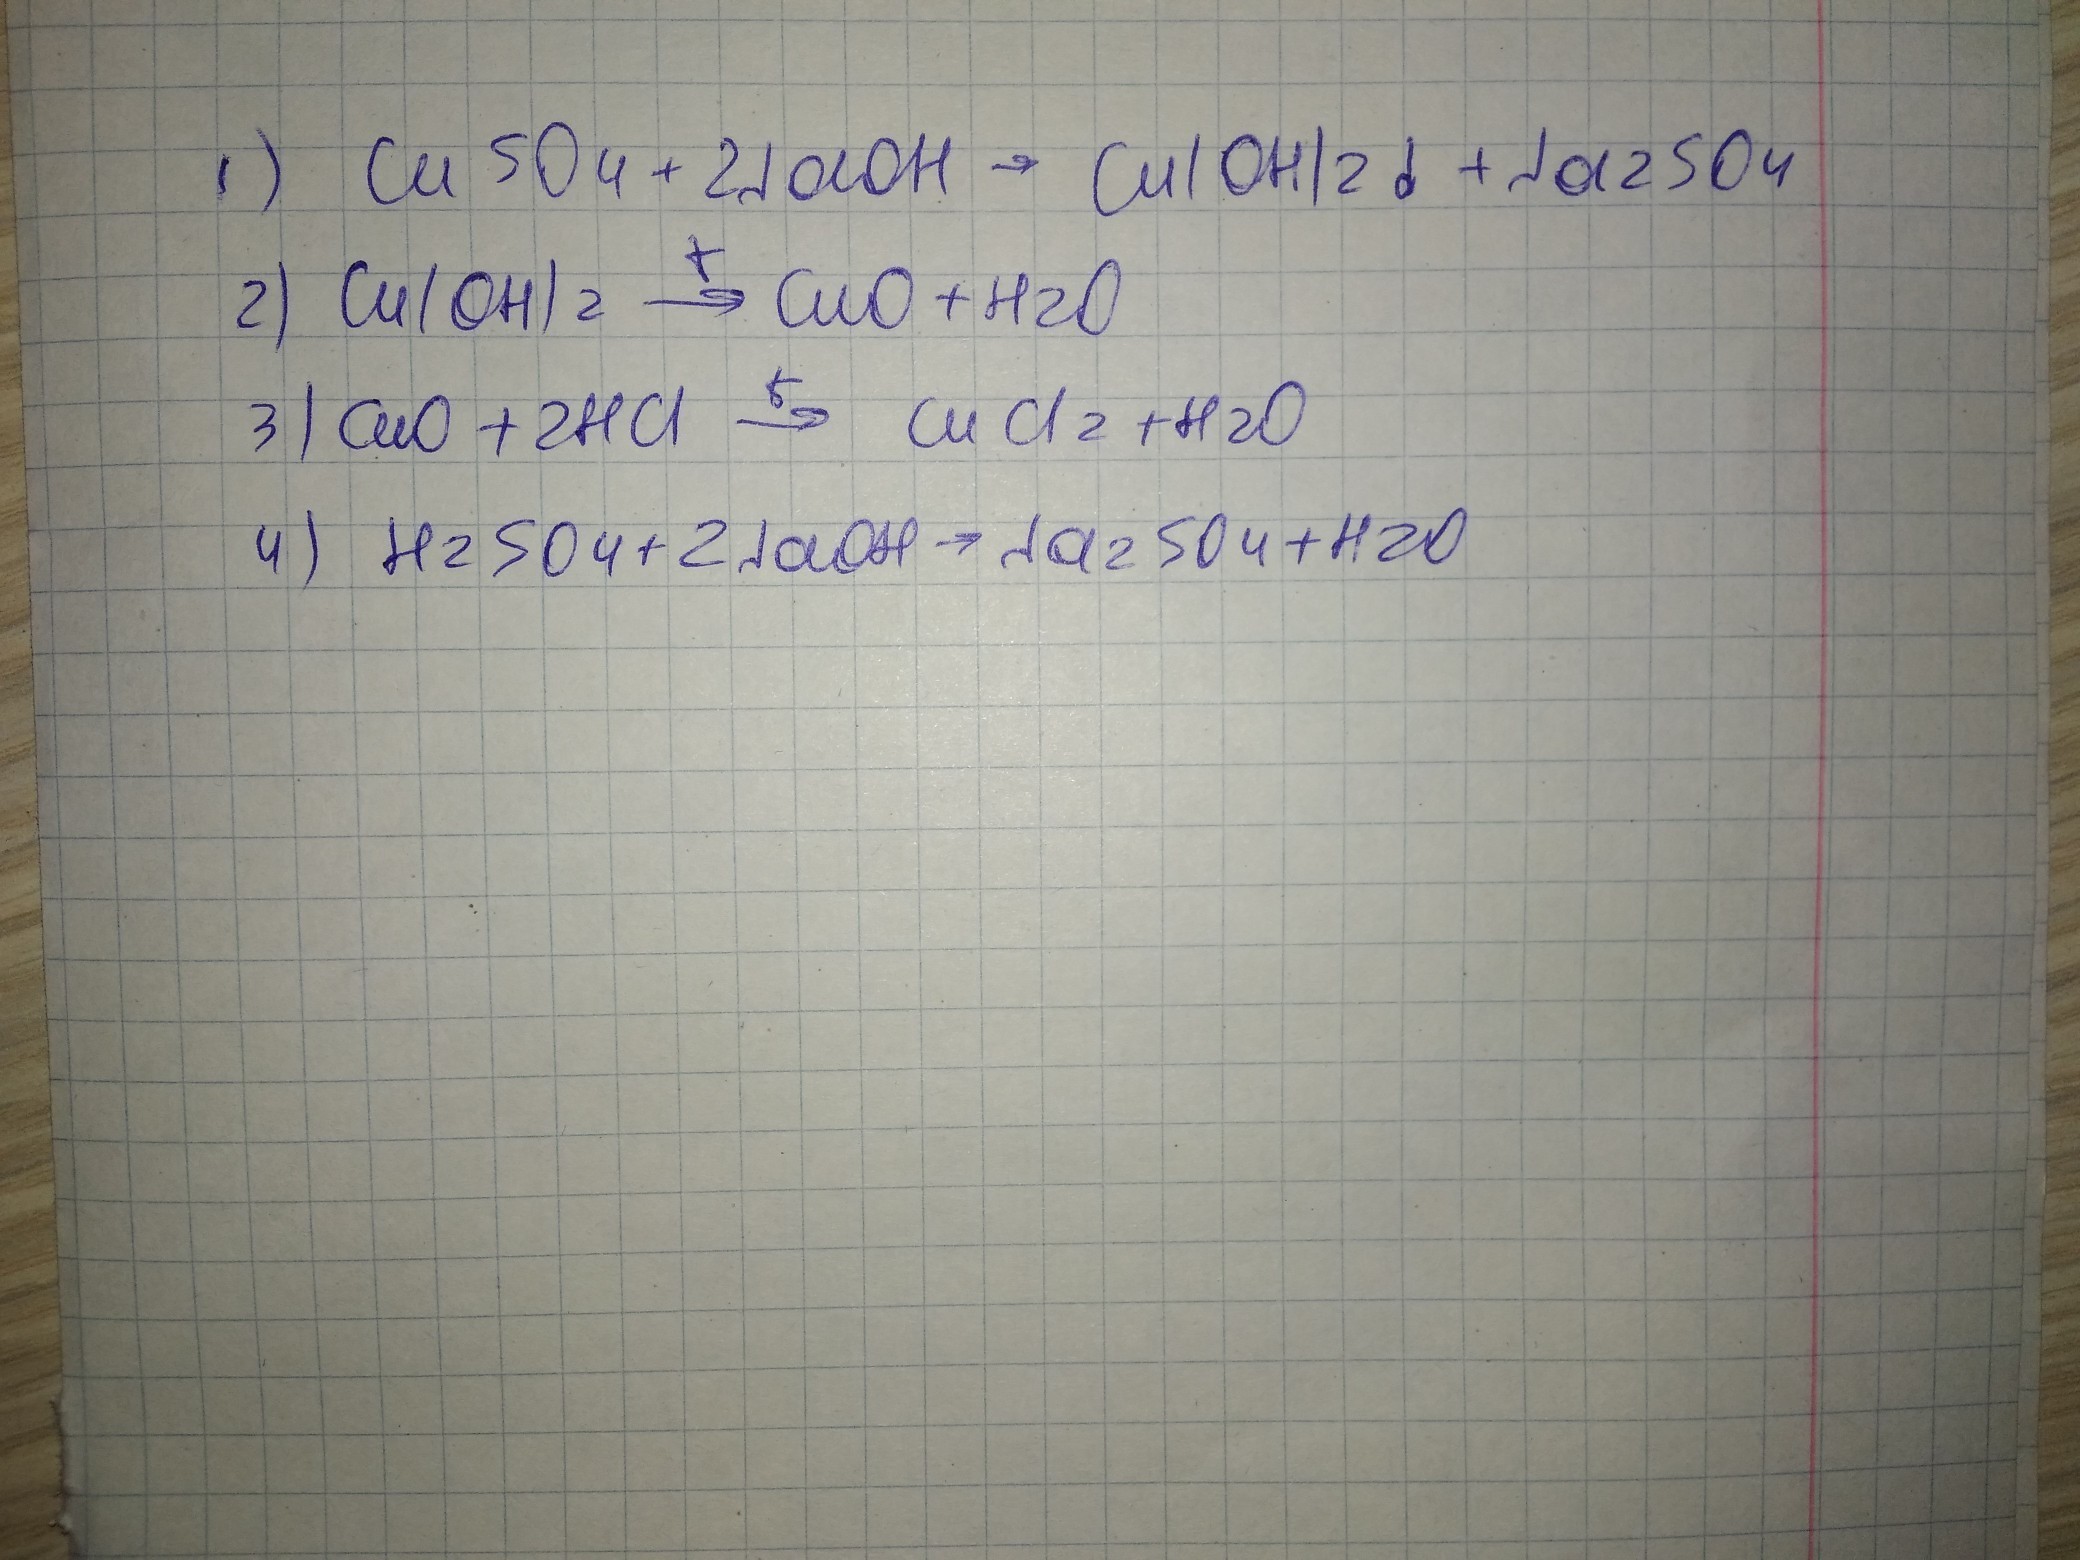 1) CuSO4 + 2NaOH → Cu(OH)2↓ + Na2SO4
2) Cu(OH)2 t→ CuO + H2O
3) CuO + 2HCl t→ CuCl2 + H2O
4) H2SO4 + 2NaOH → Na2SO4 + H2O